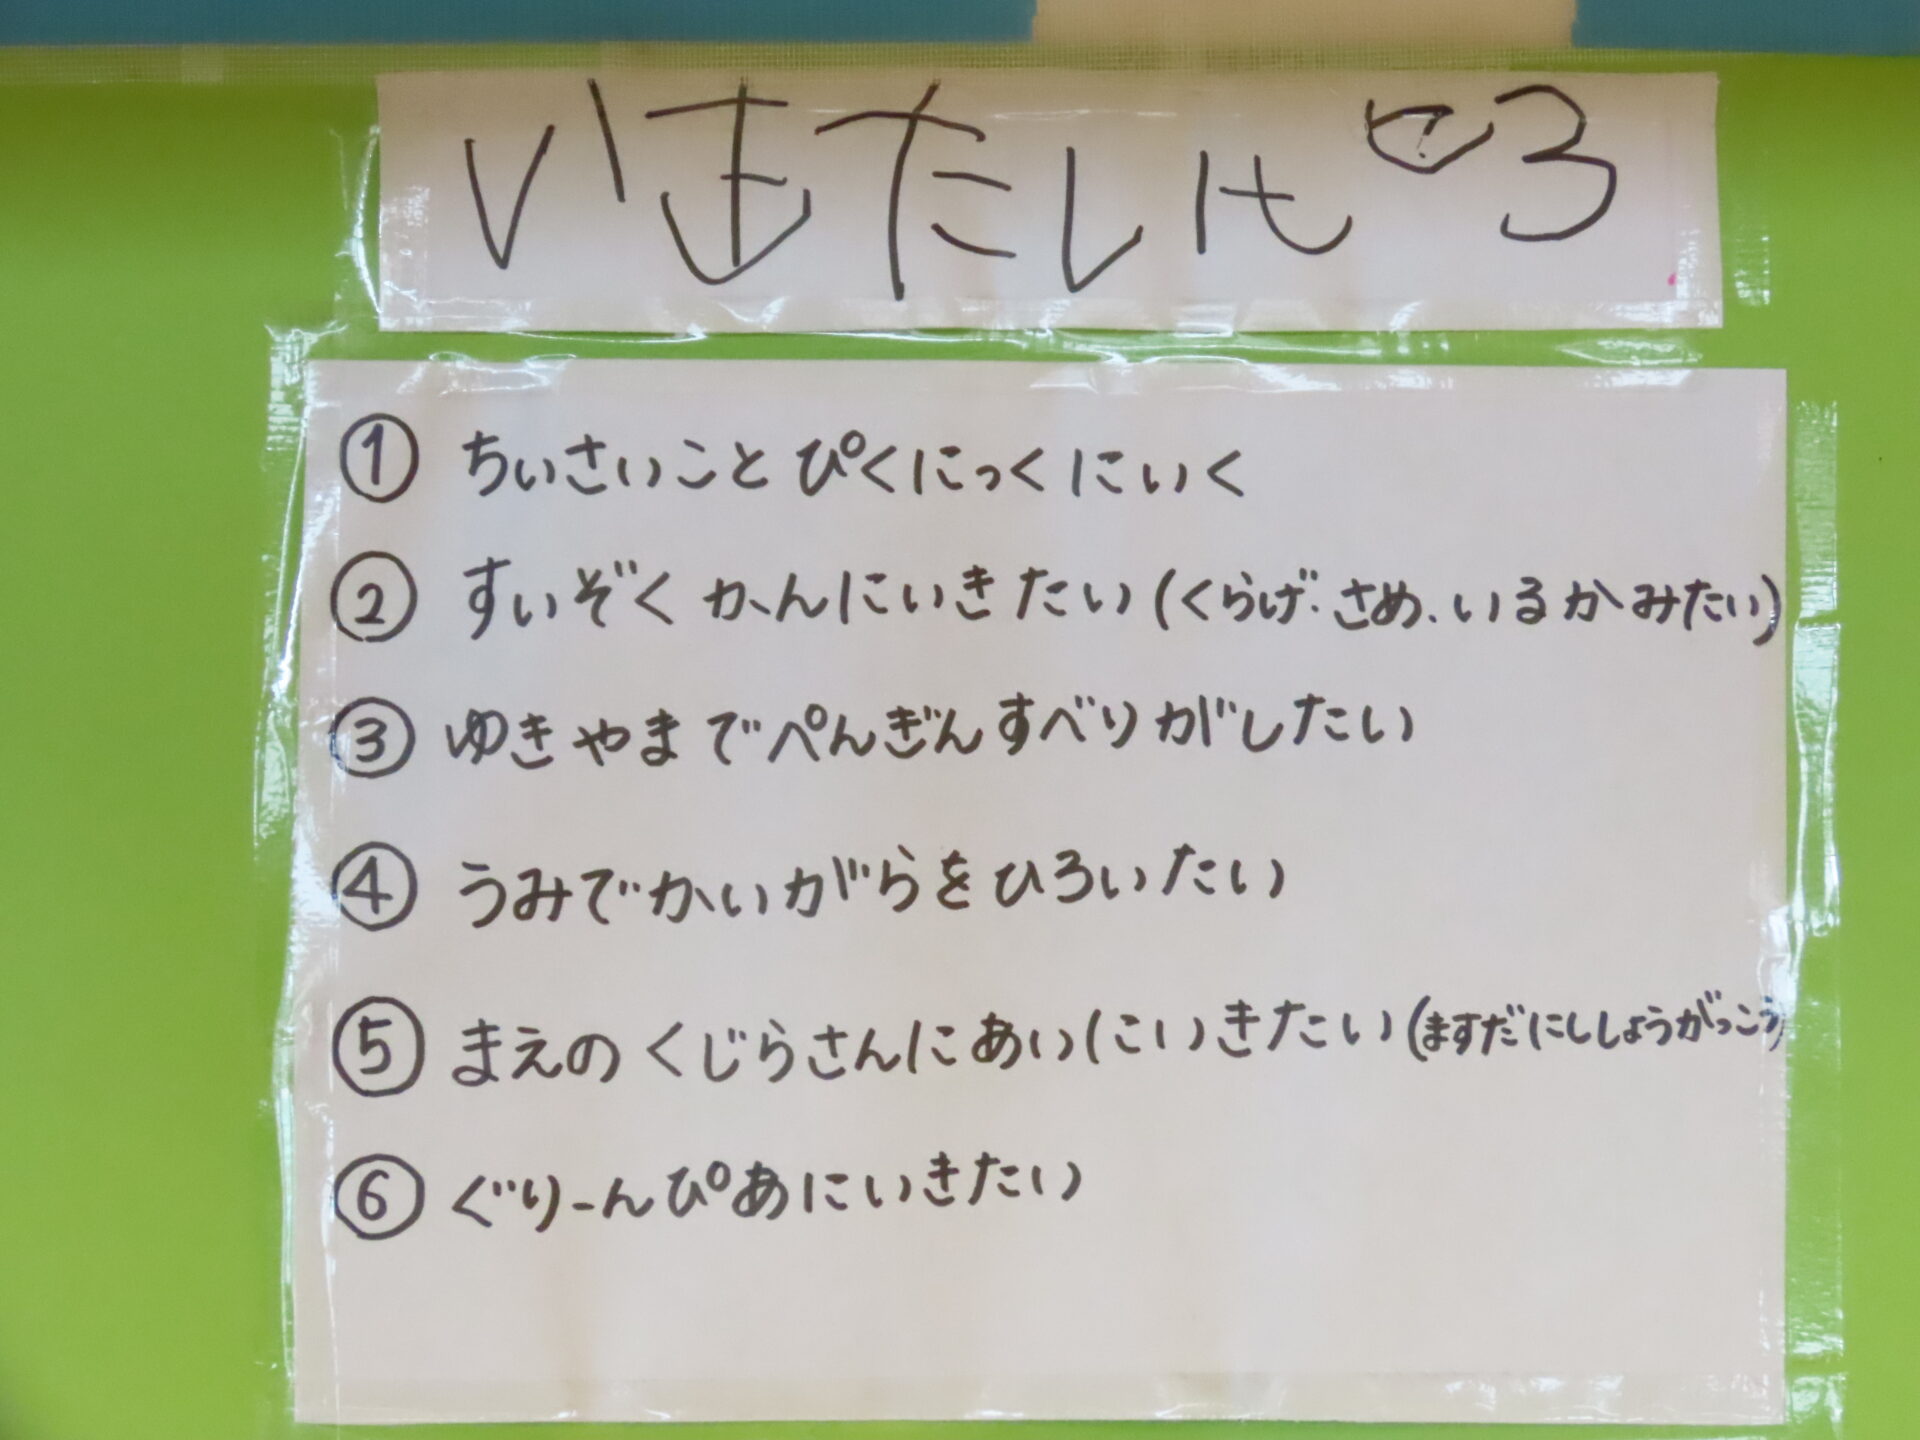 いきたいところ
① ちいさいことぴくにっくにいく
② すいぞくかんにいきたい(くらげ.さめ.いるかみたい)
③ ゆきやまでぺんぎんすべりがしたい
④ うみでかいがらをひろいたい
⑤ まえのくじらさんにあいにいきたい(ますだにししょうがっこう)
⑥ ぐりーんぴあにいきたい